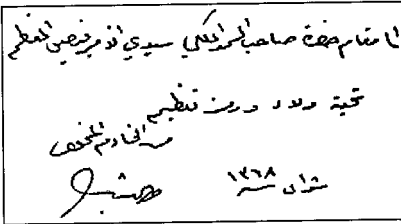 الى مقام حضرة صاحب السمو الملكي سيدي الامير فيصل المعظم
تحية ولاء و
من الخادم المخلص
شوال سنة ١٣٦٨